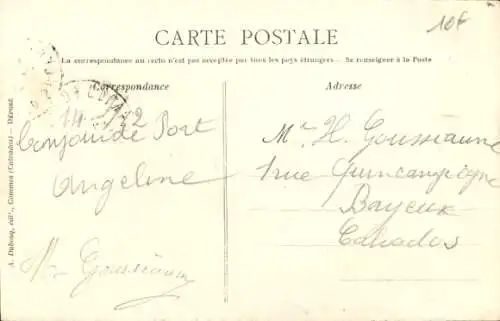 10F
CARTE POSTALE
La correspondance au recto n'est pas acceptée par tous les pays étrangers. — Se renseigner à la Poste
Correspondance
Adresse
14 22
Bonjour de Port
Angeline
Goussiaume
Mr H. Goussiaume
1 rue Quincangrogne
Bayeux
Calvados
A. Dubosq, édit., Commes (Calvados) —